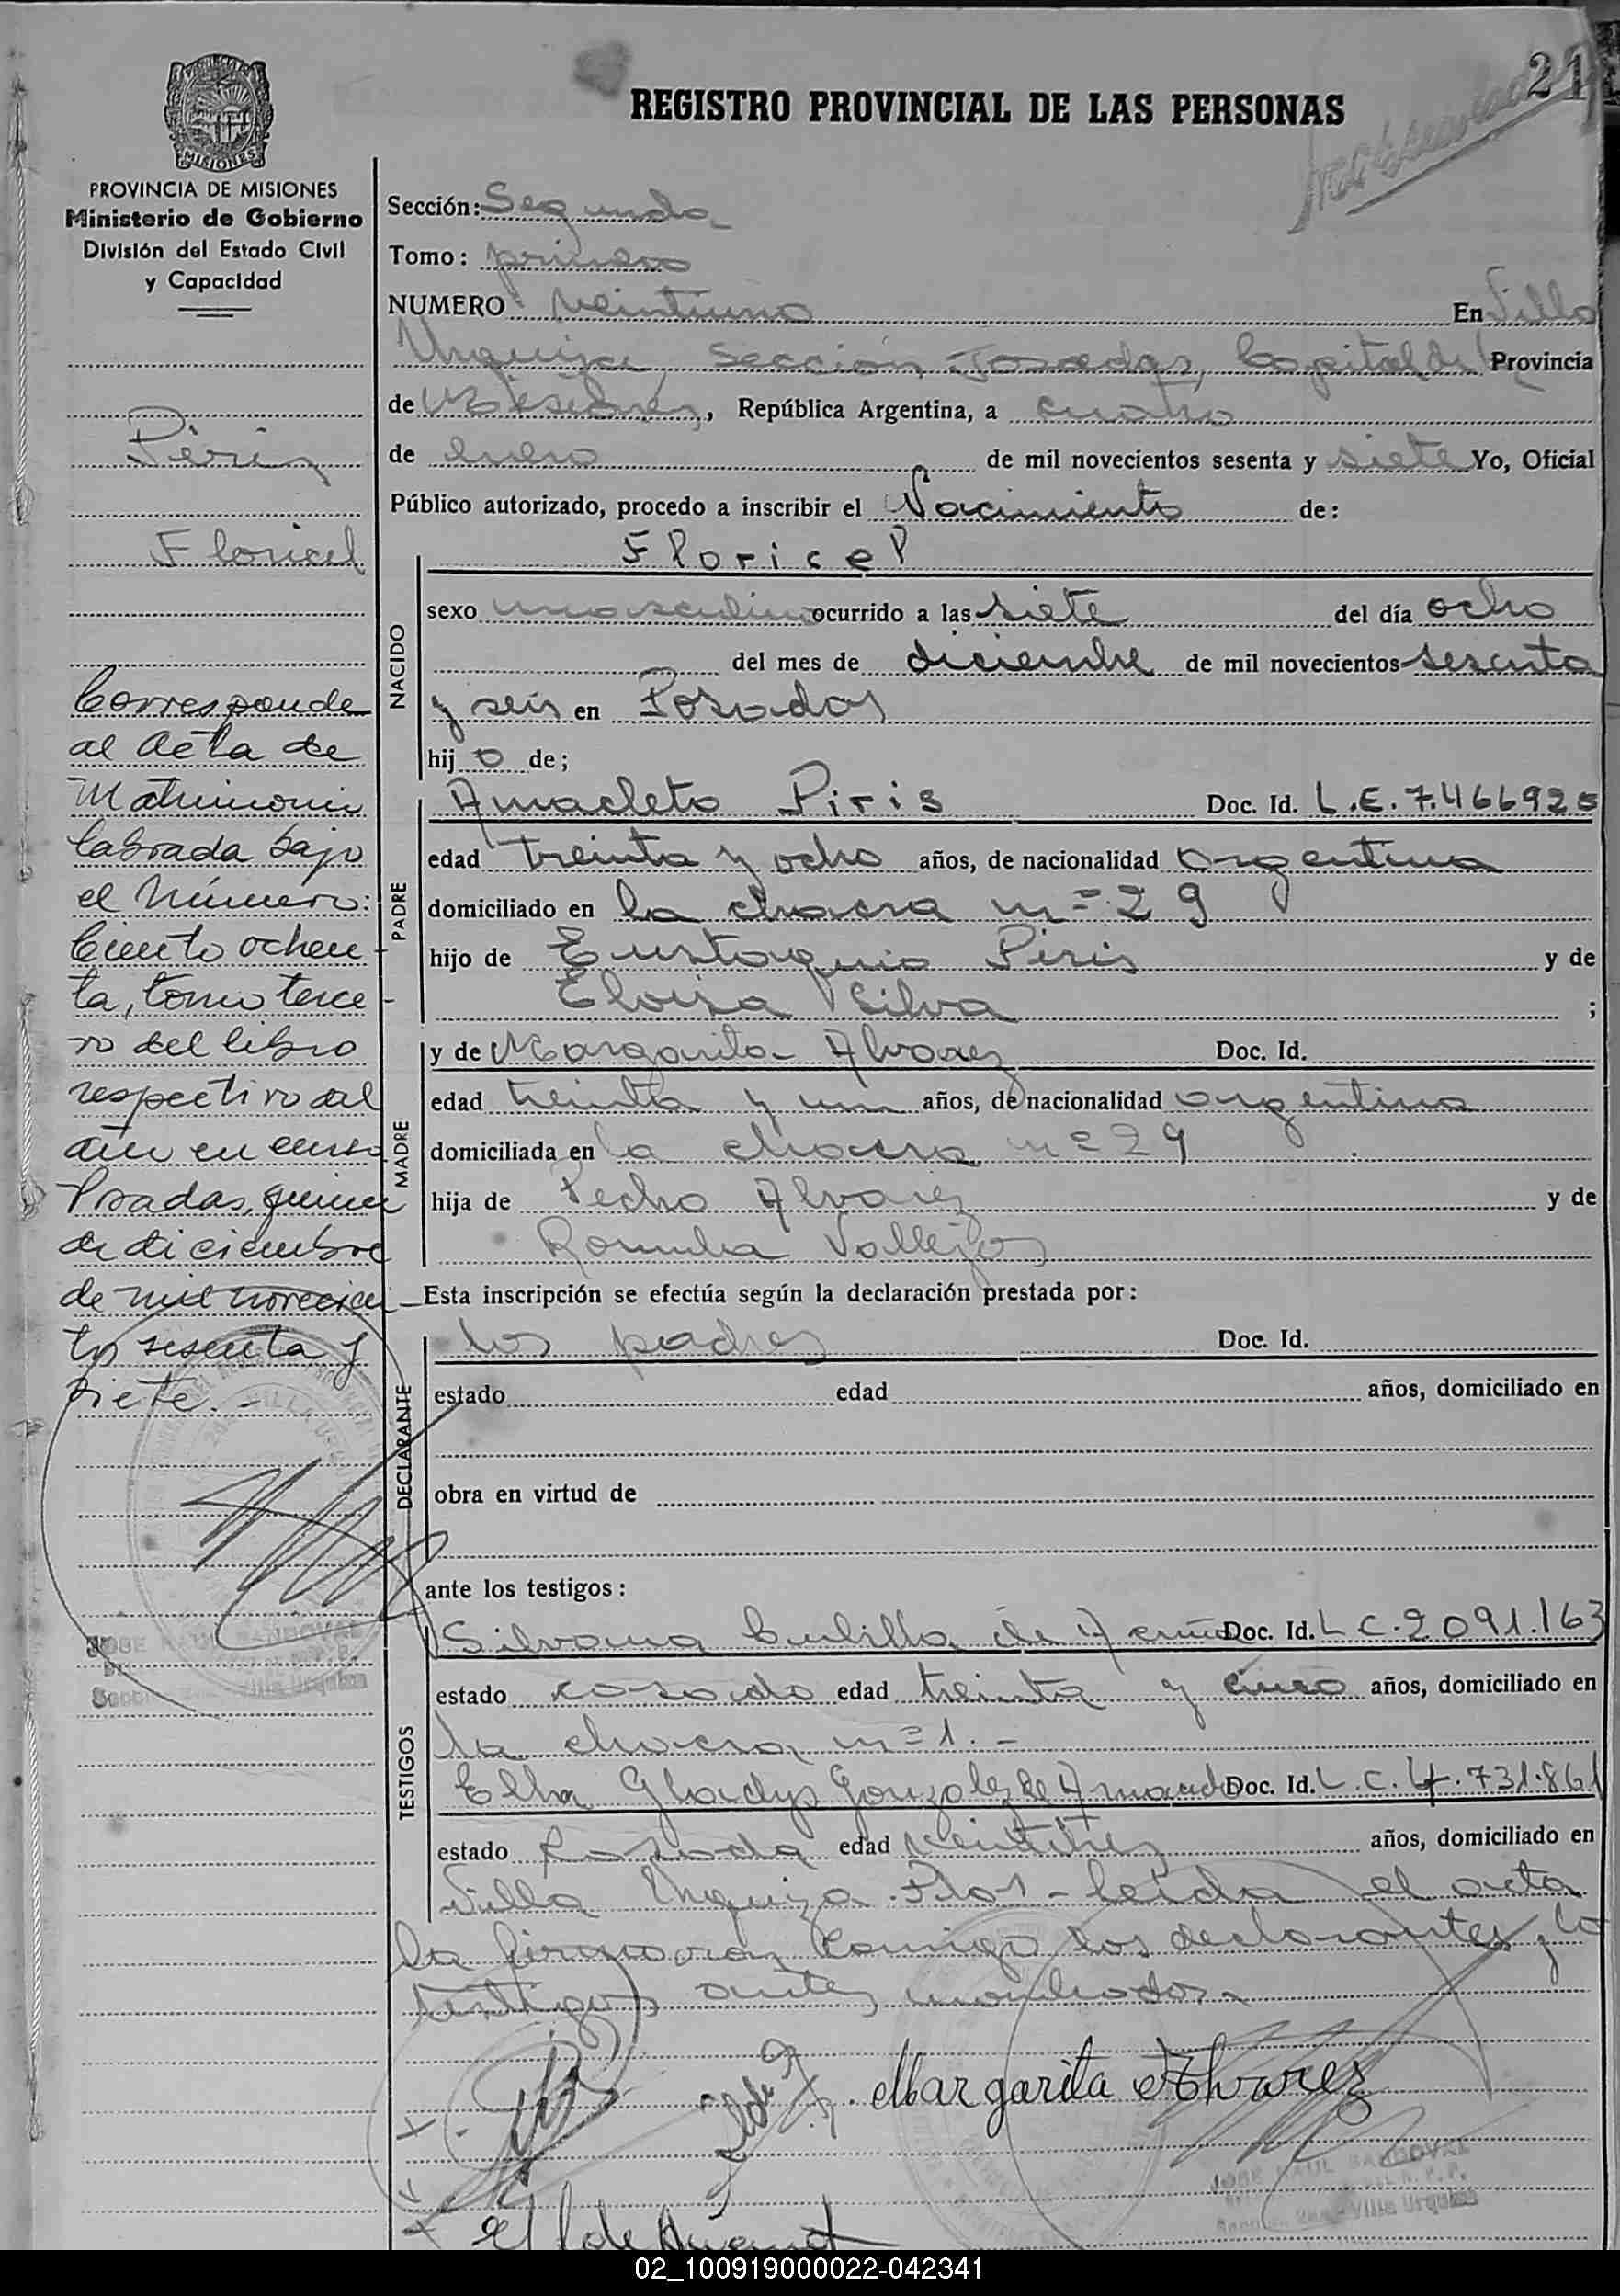 21
REGISTRO PROVINCIAL DE LAS PERSONAS
MISIONES
PROVINCIA DE MISIONES
Ministerio de Gobierno
División del Estado Civil
y Capacidad
Piris
Floricel
Corresponde
al Acta de
Matrimonio
labrada bajo
el Número:
Ciento ochen-
ta, tomo terce-
ro del libro
respectivo del
año en curso
Posadas, quince
de diciembre
de mil novecien-
tos sesenta y
siete.-
JOSE RAUL SANDOVAL
Villa Urquiza
Sección: Segunda
Tomo: primero
NUMERO veintiuno En Villa
Urquiza Sección Posadas, Capital de la Provincia
de Misiones, República Argentina, a cuatro
de Enero de mil novecientos sesenta y siete Yo, Oficial
Público autorizado, procedo a inscribir el Nacimiento de:
Floricel
NACIDO
sexo masculino ocurrido a las siete del día ocho
del mes de diciembre de mil novecientos sesenta
y seis en Posadas
hijo de;
PADRE
Anacleto Piris Doc. Id. L.E. 7.466925
edad treinta y ocho años, de nacionalidad argentina
domiciliado en la chacra nº 29
hijo de Eustaquio Piris y de
Eloisa Silva ;
MADRE
y de Margarita Alvarez Doc. Id.
edad treinta y un años, de nacionalidad argentina
domiciliada en la chacra nº 29
hija de Pedro Alvarez y de
Romula Vallejos
Esta inscripción se efectúa según la declaración prestada por:
DECLARANTE
los padres Doc. Id.
estado edad años, domiciliado en
obra en virtud de
ante los testigos:
TESTIGOS
Silvana de Acuña Doc. Id. L C. 2091.163
estado casado edad treinta y cinco años, domiciliado en
la chacra nº 1.-
Elba Gladys Gonzalez de Doc. Id. L.C. 4.731.861
estado casada edad veintitres años, domiciliado en
Villa Urquiza Pdas - Leida el acta
la firmaran conmigo los declarantes y lo
testigos antes nombrados.
Margarita Alvarez
JOSE RAUL SANDOVAL
Villa Urquiza
02_100919000022-042341